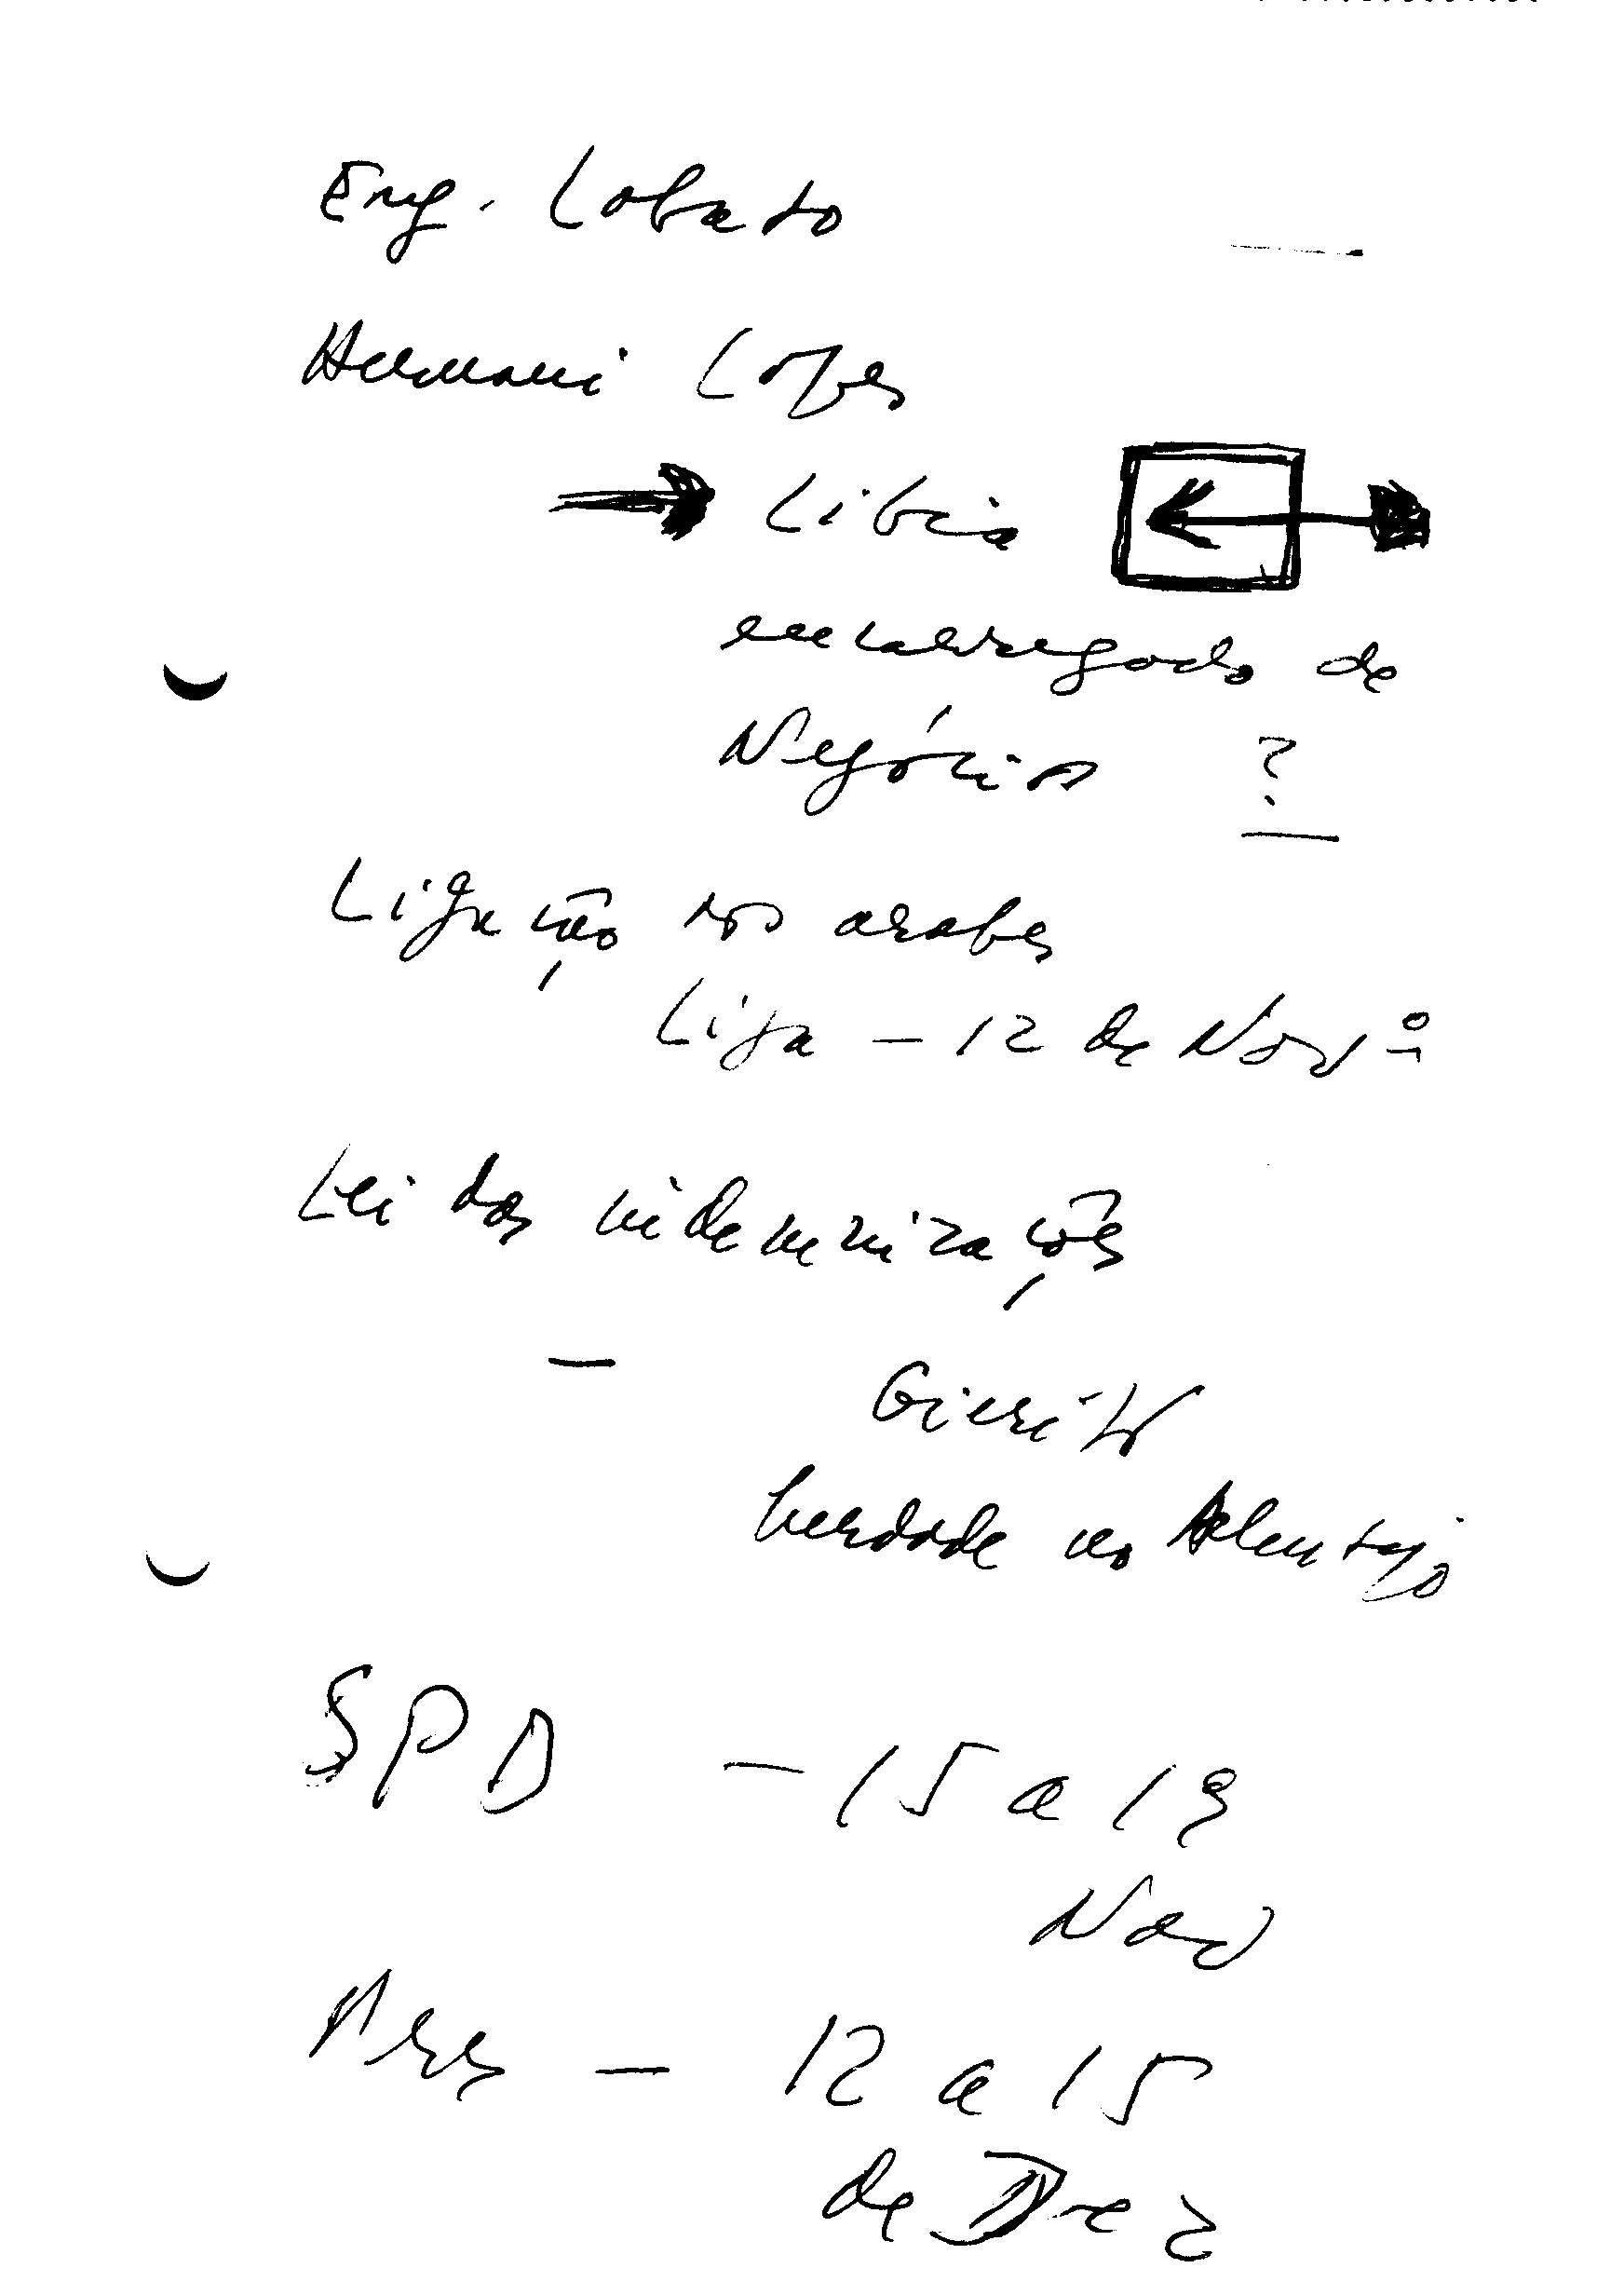 Eng. Lobato
Hernani Lopes
Libia
encarregado de
Negócios ?
Ligação aos arabes
Liga - 12 de Novº
Lei das indemnizações
-
herdade no Alentejo
SPD - 15 a 19
Nov
- 12 a 15
de Dez